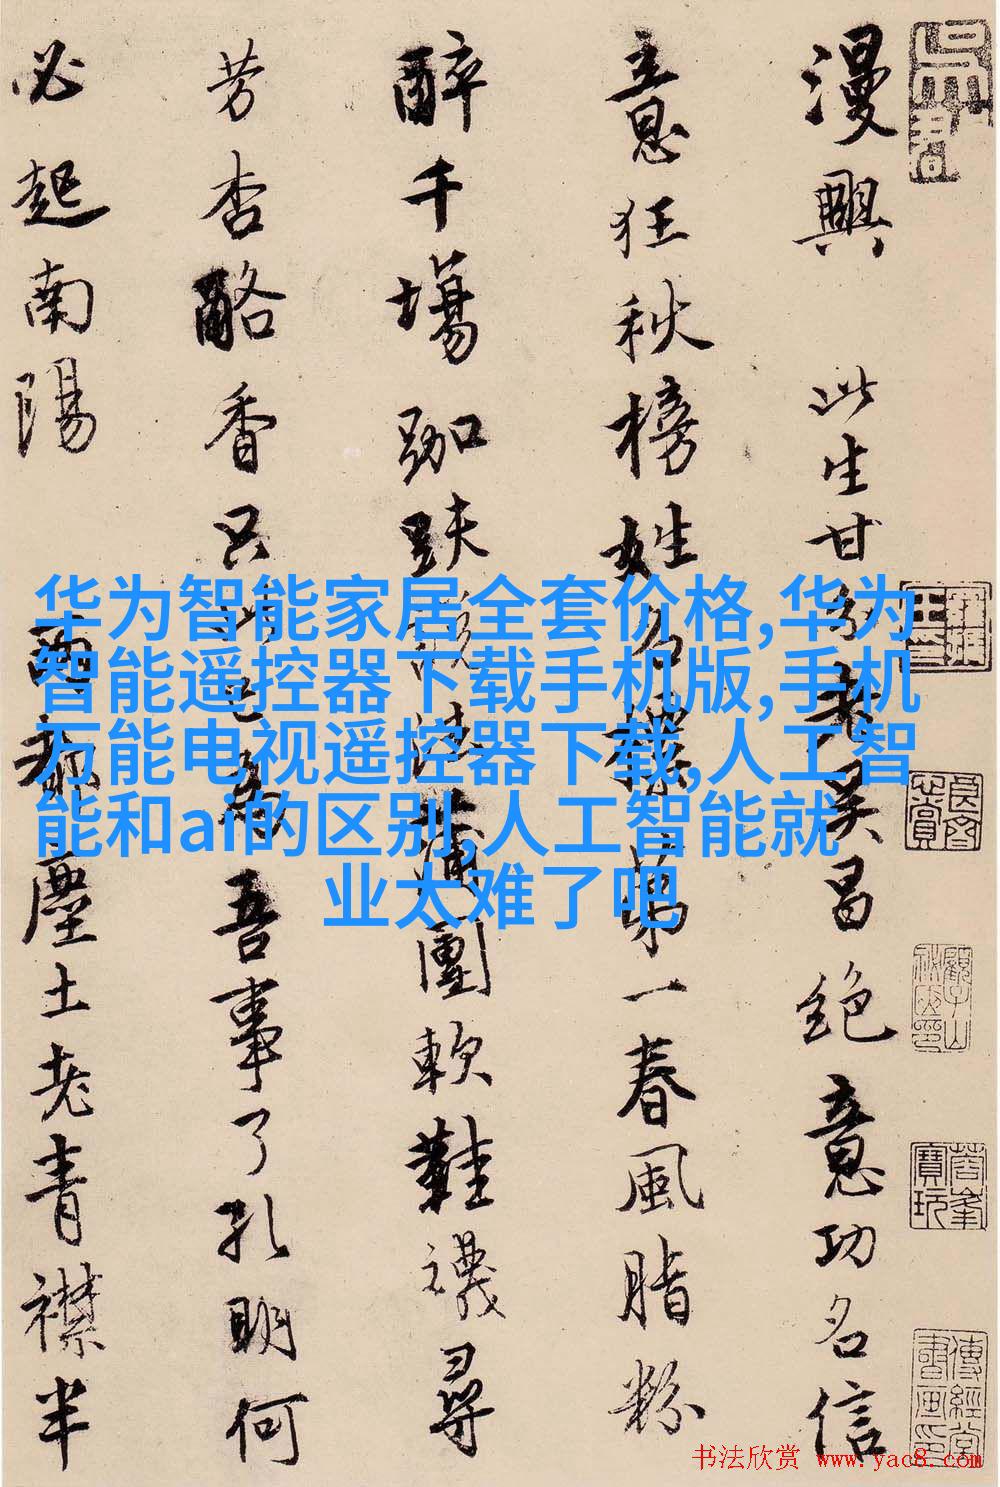 漫興 此生甘分老吳昌絕意功名信
意狂秋榜姓名標第一春風脂粉
醉千場跏趺說法蒲團軟鞋襪尋
芳杏酪香只此已為吾事了孔明何
必起南陽 兩塵土老青襟半
华为智能家居全套价格,华为
智能遥控器下载手机版,手机
万能电视遥控器下载,人工智
能和ai的区别,人工智能就
业太难了吧
顧子山秘笈印
书法欣赏 www.yac8.com